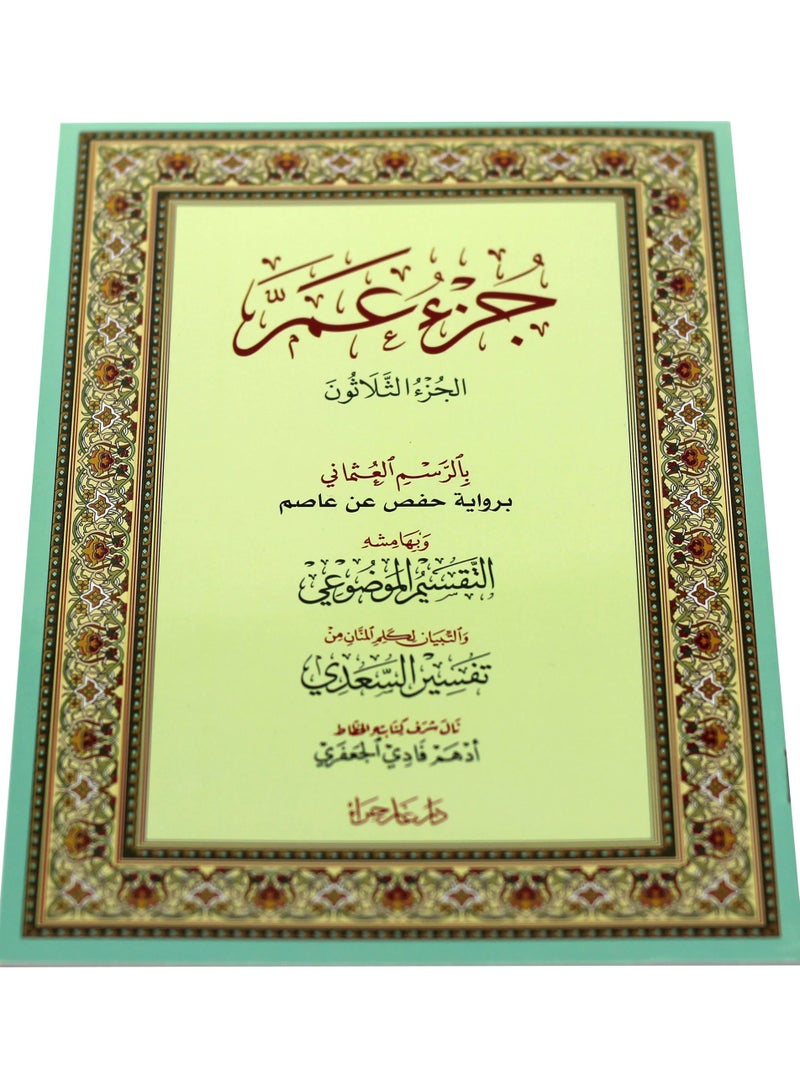 جُزْءُ عَمَّ
الجُزْءُ الثَّلَاثُونَ
بِالرَّسْمِ العُثْمَانِي
برواية حفص عن عاصم
وَبِهَامِشِهِ
التَّقْسِيمُ المَوْضُوعِي
وَالتِّبْيَان لِكَلِمِ المَنَّانِ مِنْ
تَفْسِيرِ السَّعْدِي
نَالَ شَرَفَ كِتَابَتِهِ الخَطَّاط
أدْهَم فَادِي الجَعْفَرِي
دَارُ غَارِ حِرَاء